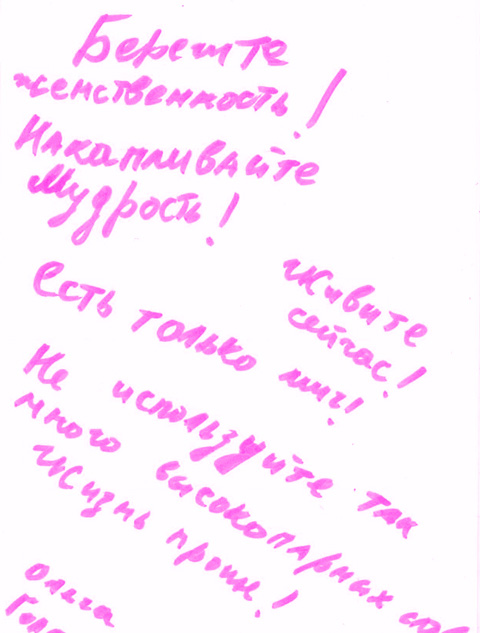 Берегите
женственность!
Накапливайте
Мудрость!
Живите
сейчас!
Есть только миг!
Не используйте так
много высокопарных слов
Жизнь проще!
Олега